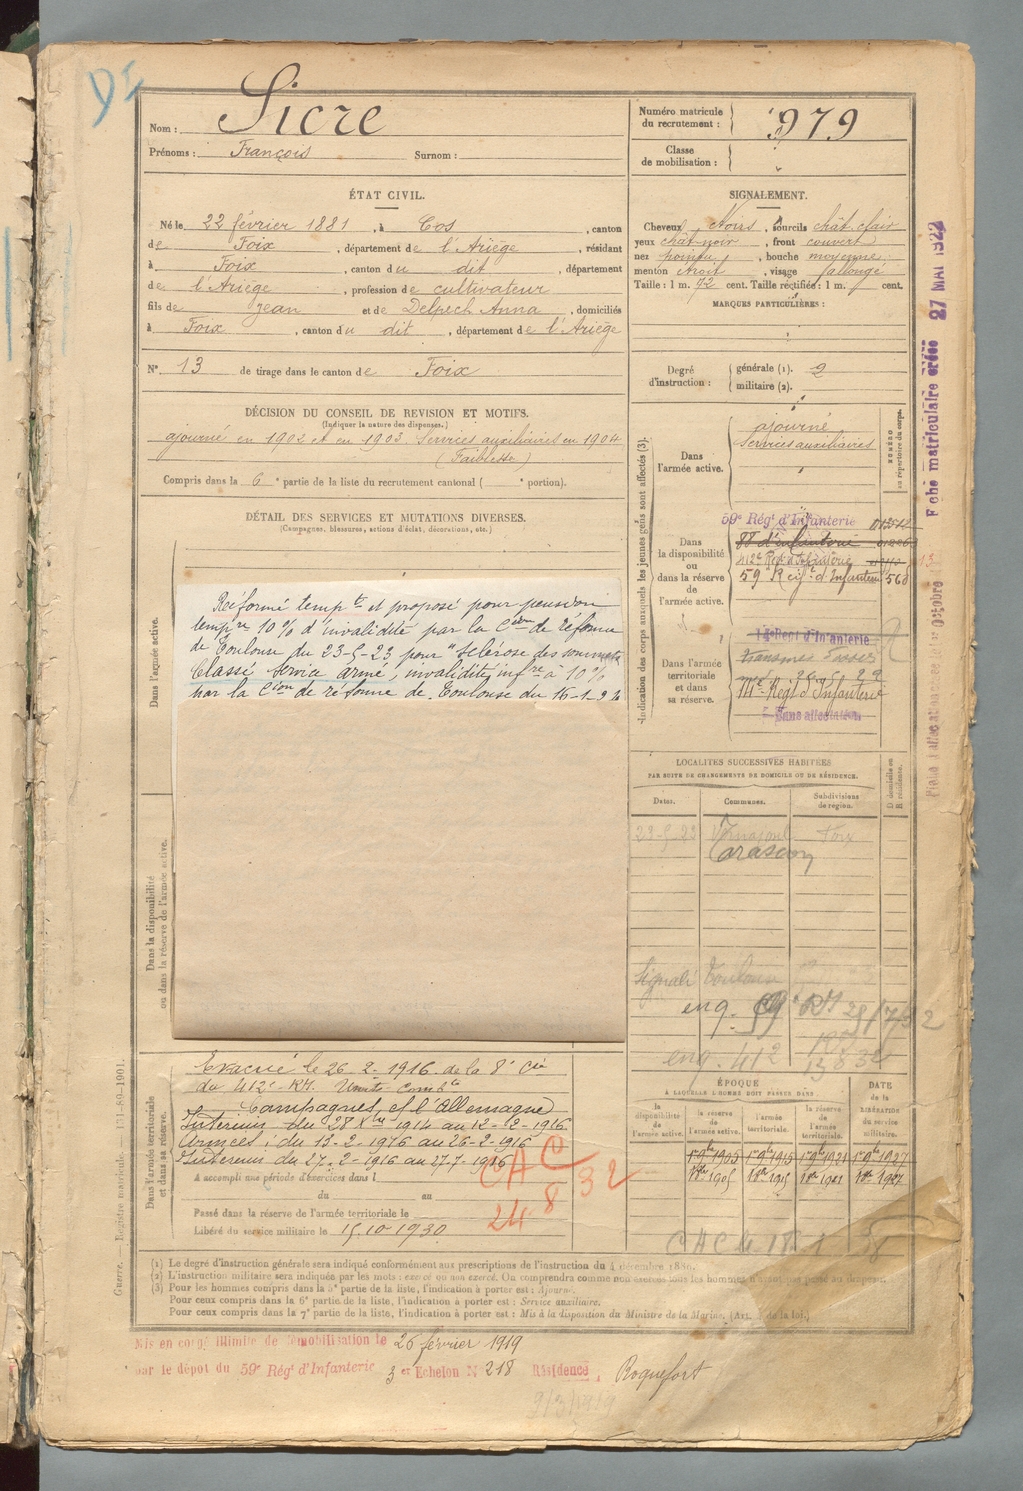 Nom : Sicre
Prénoms : François Surnom :
Numéro matricule du recrutement : 979
Classe de mobilisation :
ÉTAT CIVIL.
Né le 22 février 1881, à Cos, canton
de Foix, département de l'Ariège, résidant
à Foix, canton du dit, département
de l'Ariège, profession de cultivateur
fils de Jean et de Delpech Anna, domiciliés
à Foix, canton du dit, département de l'Ariège
N° 13 de tirage dans le canton de Foix
SIGNALEMENT.
Cheveux Noirs, sourcils chât clair
yeux chât noir, front couvert
nez pointu, bouche moyenne
menton droit, visage allongé
Taille : 1 m. 72 cent. Taille rectifiée : 1 m. cent.
MARQUES PARTICULIÈRES :
Degré d'instruction : générale (1). 2
militaire (2).
DÉCISION DU CONSEIL DE REVISION ET MOTIFS.
(Indiquer la nature des dispenses.)
ajourné en 1902 et en 1903. Services auxiliaires en 1904
(Faiblesse)
Compris dans la 6e partie de la liste du recrutement cantonal ( e portion).
DÉTAIL DES SERVICES ET MUTATIONS DIVERSES.
(Campagnes, blessures, actions d'éclat, décorations, etc.)
Dans l'armée active.
Réformé tempre et proposé pour pension
tempre 10 % d'invalidité par la Cion de réforme
de Toulouse du 23-5-23 pour "Sclérose des sommets
Classé service armé, invalidité infre à 10 %
par la Cion de réforme de Toulouse du 16-1-
Dans la disponibilité
ou dans la réserve de l'armée active.
Dans l'armée territoriale
et dans sa réserve.
Evacué le 26-2-1916 de la 8e Cie
du 412e RI. Unité Combte
Campagnes c/ l'Allemagne
Intérieur du 28 Xbre 1914 au 12-12-1916
Armées : du 13-2-1916 au 26-2-1916
Intérieur du 27-2-1916 au 27-7-1916
A accompli une période d'exercices dans l
du au
Passé dans la réserve de l'armée territoriale le
Libéré du service militaire le 15.10.1930
CAC 32
24 8
Indication des corps auxquels les jeunes gens sont affectés (3).
NUMÉRO au répertoire du corps.
Dans l'armée active. ajourné
Services auxiliaires
Dans la disponibilité ou dans la réserve de l'armée active.
59e Régt d'Infanterie
88 d'Infanterie
412e Régt d'Infanterie
59 Régt d'Infanterie 560
Dans l'armée territoriale et dans sa réserve.
14e Régt d'Infanterie
Régt d'Infanterie
Sans affectation
Fiche matriculaire créée 27 MAI 1922
LOCALITÉS SUCCESSIVES HABITÉES
PAR SUITE DE CHANGEMENTS DE DOMICILE OU DE RÉSIDENCE.
Dates. Communes. Subdivisions de région. D domicile ou R résidence.
23-5-23 Vernajoul Foix
Tarascon
Signalé Toulouse
eng. 59e RI 29/7/32
eng. 412
13 8 32
ÉPOQUE
À LAQUELLE L'HOMME DOIT PASSER DANS :
DATE de la LIBÉRATION du service militaire.
la disponibilité de l'armée active.
la réserve de l'armée active.
l'armée territoriale.
la réserve de l'armée territoriale.
1er 9bre 1905 1er 9bre 1915 1er 9bre 1921 1er 9bre 1927
CAC le 18
(1) Le degré d'instruction générale sera indiqué conformément aux prescriptions de l'instruction du 4 décembre 1889.
(2) L'instruction militaire sera indiquée par les mots : exercé ou non exercé. On comprendra comme non exercés tous les hommes n'ayant
(3) Pour les hommes compris dans la 5e partie de la liste, l'indication à porter est : Ajourné.
Pour ceux compris dans la 6e partie de la liste, l'indication à porter est : Service auxiliaire.
Pour ceux compris dans la 7e partie de la liste, l'indication à porter est : Mis à la disposition du Ministre de la Marine. (Art. de la loi.)
Guerre. — Registre matricule. — 131-89-1901.
Mis en congé illimité de démobilisation le 26 février 1919
par le dépôt du 59e Régt d'Infanterie 3 er Echelon N 218 Résidence, Roquefort
9/3/1919